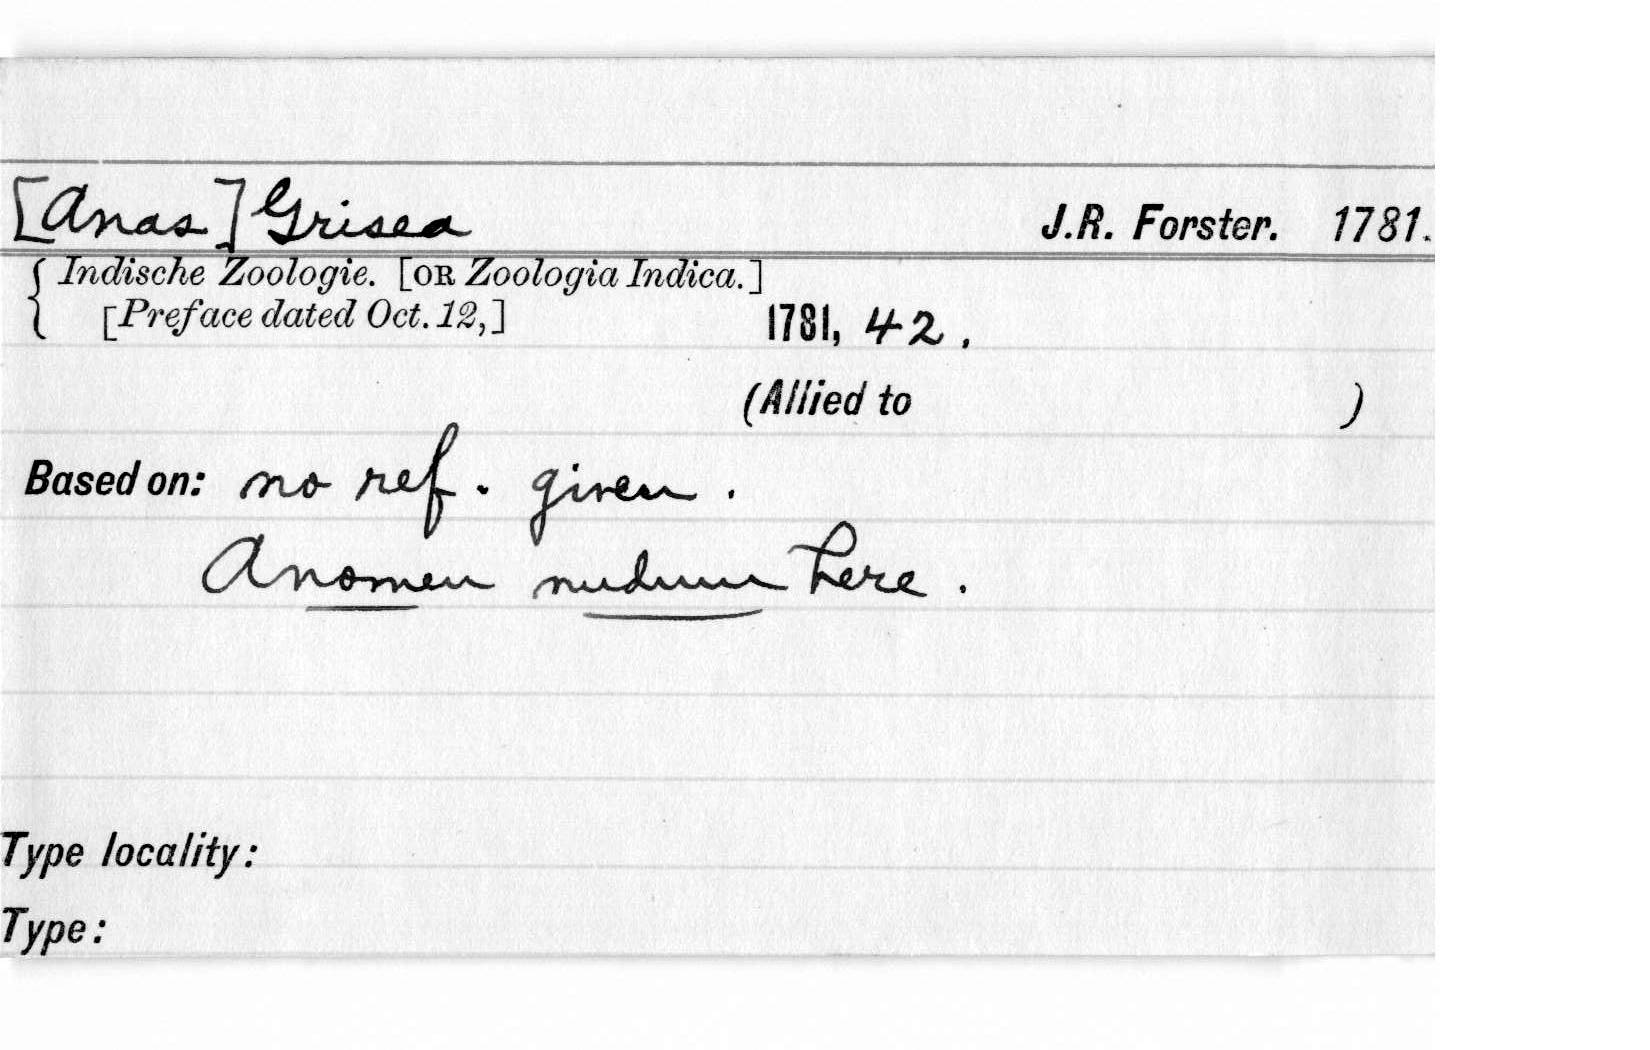 [Anas] Grisea J.R. Forster. 1781.
{ Indische Zoologie. [OR Zoologia Indica.]
[Preface dated Oct. 12,] 1781, 42.
(Allied to )
Based on: no ref. given.
A nomen nudum here.
Type locality:
Type: